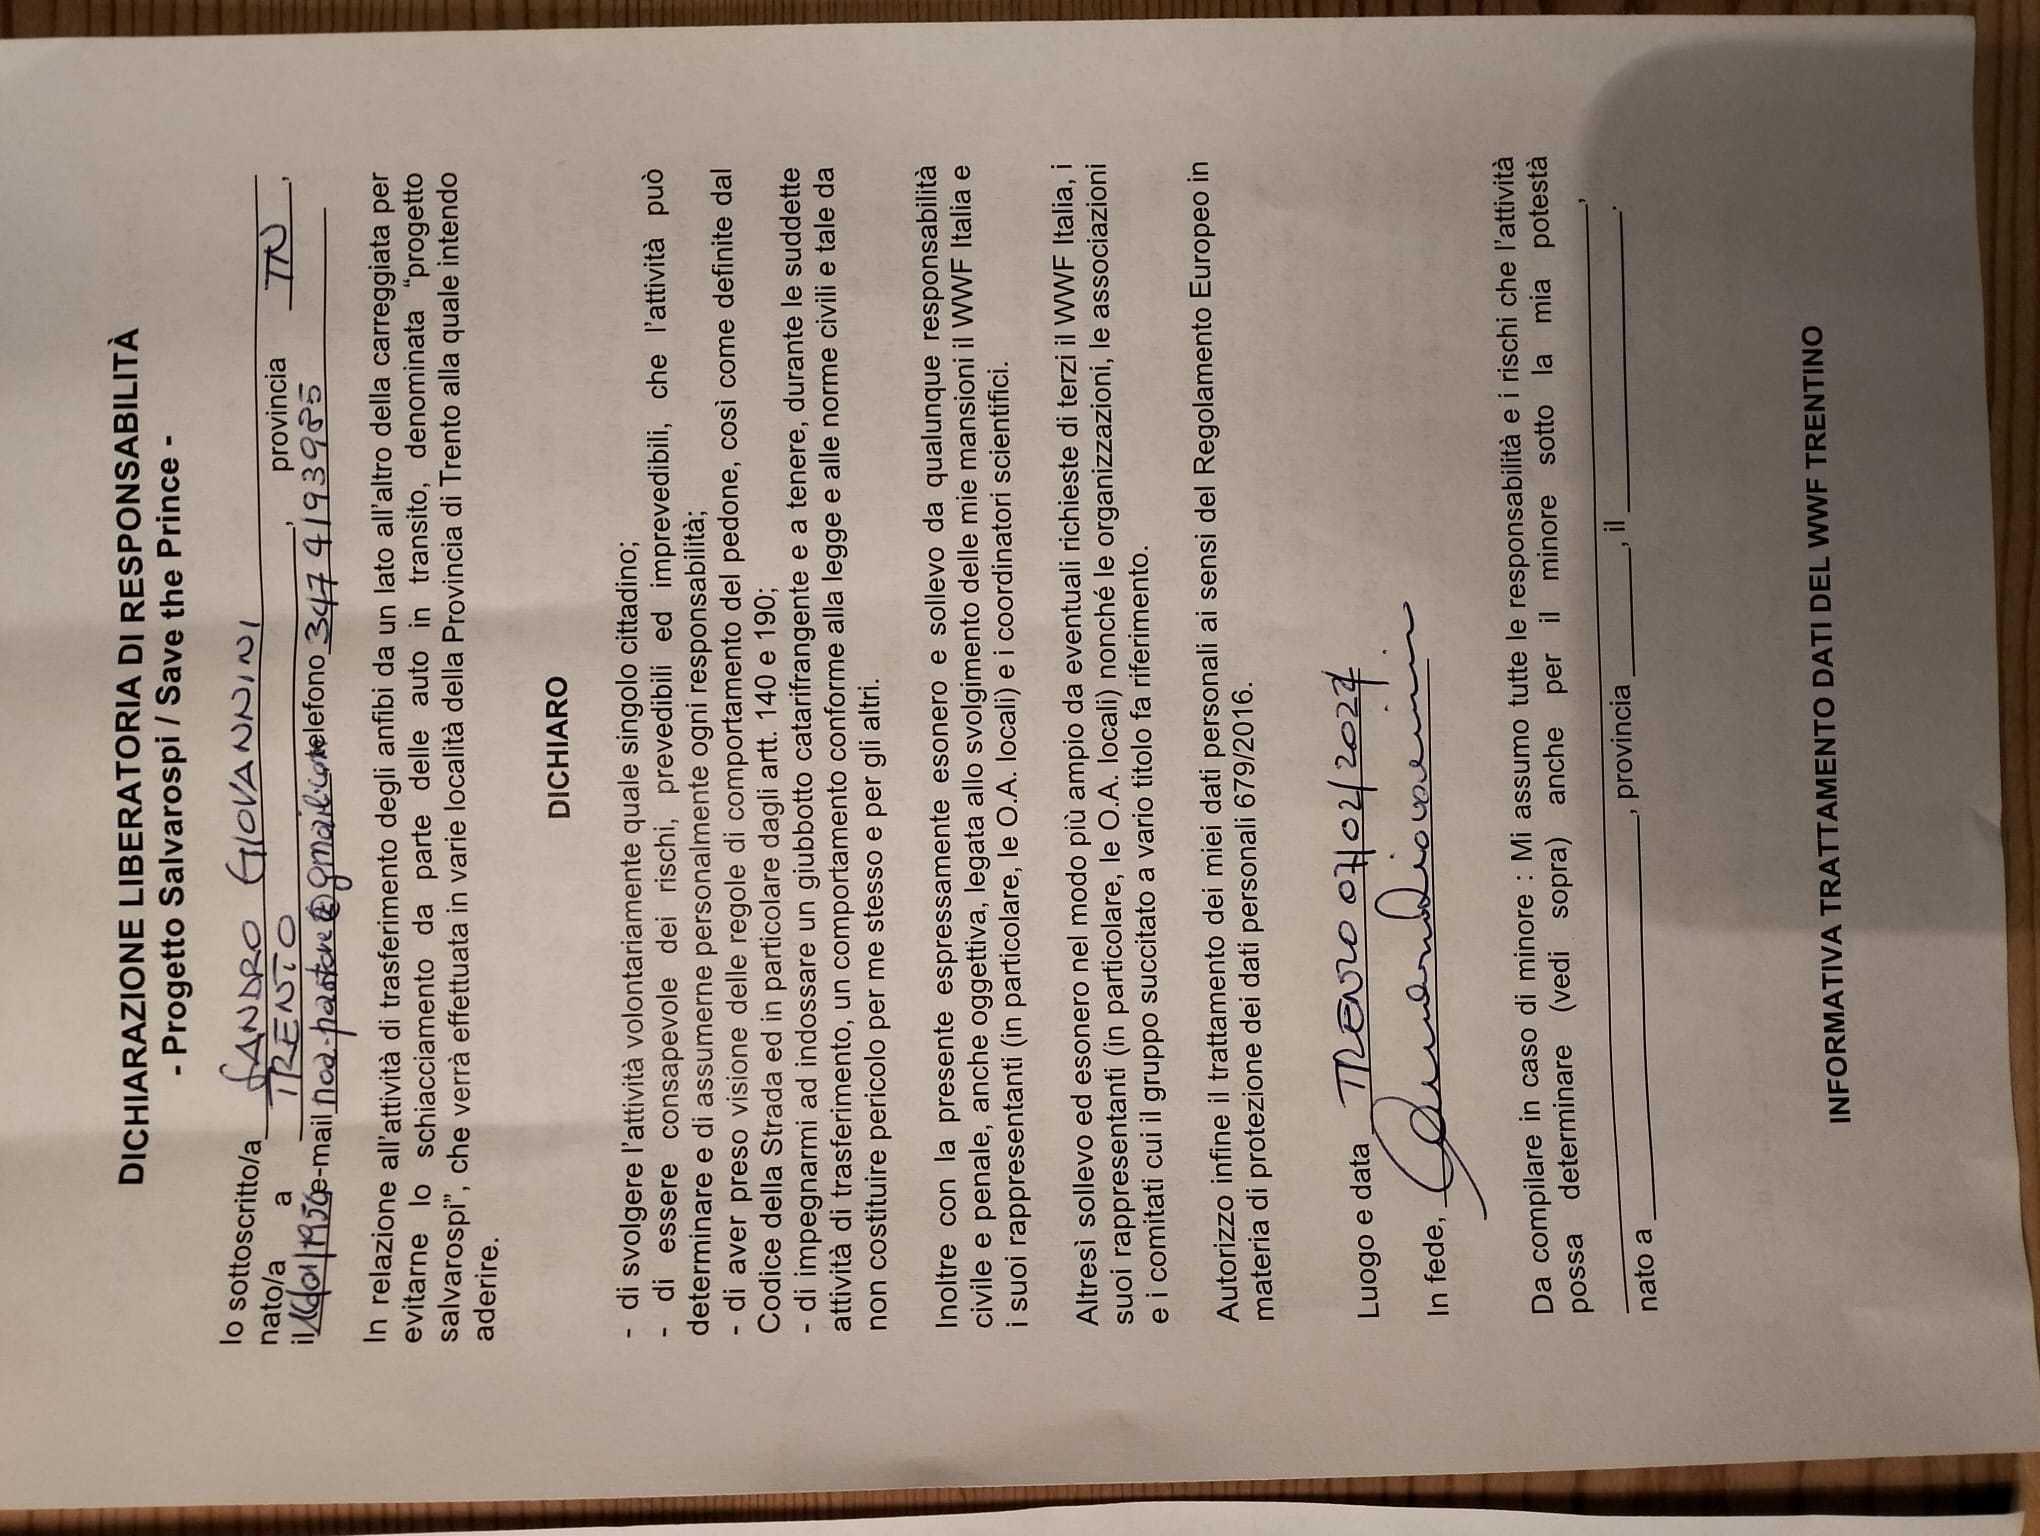 DICHIARAZIONE LIBERATORIA DI RESPONSABILITÀ
- Progetto Salvarospi / Save the Prince -
Io sottoscritto/a SANDRO GIOVANNINI
nato/a a TRENTO, provincia TN,
il 16/01/1956 e-mail noa.pastore@gmail.com telefono 347 4193985
In relazione all'attività di trasferimento degli anfibi da un lato all'altro della carreggiata per
evitarne lo schiacciamento da parte delle auto in transito, denominata “progetto
salvarospi”, che verrà effettuata in varie località della Provincia di Trento alla quale intendo
aderire.
DICHIARO
- di svolgere l'attività volontariamente quale singolo cittadino;
- di essere consapevole dei rischi, prevedibili ed imprevedibili, che l'attività può
determinare e di assumerne personalmente ogni responsabilità;
- di aver preso visione delle regole di comportamento del pedone, così come definite dal
Codice della Strada ed in particolare dagli artt. 140 e 190;
- di impegnarmi ad indossare un giubbotto catarifrangente e a tenere, durante le suddette
attività di trasferimento, un comportamento conforme alla legge e alle norme civili e tale da
non costituire pericolo per me stesso e per gli altri.
Inoltre con la presente espressamente esonero e sollevo da qualunque responsabilità
civile e penale, anche oggettiva, legata allo svolgimento delle mie mansioni il WWF Italia e
i suoi rappresentanti (in particolare, le O.A. locali) e i coordinatori scientifici.
Altresì sollevo ed esonero nel modo più ampio da eventuali richieste di terzi il WWF Italia, i
suoi rappresentanti (in particolare, le O.A. locali) nonché le organizzazioni, le associazioni
e i comitati cui il gruppo succitato a vario titolo fa riferimento.
Autorizzo infine il trattamento dei miei dati personali ai sensi del Regolamento Europeo in
materia di protezione dei dati personali 679/2016.
Luogo e data TRENTO 07/02/2024
In fede,
Da compilare in caso di minore : Mi assumo tutte le responsabilità e i rischi che l'attività
possa determinare (vedi sopra) anche per il minore sotto la mia potestà
,
nato a , provincia , il .
INFORMATIVA TRATTAMENTO DATI DEL WWF TRENTINO